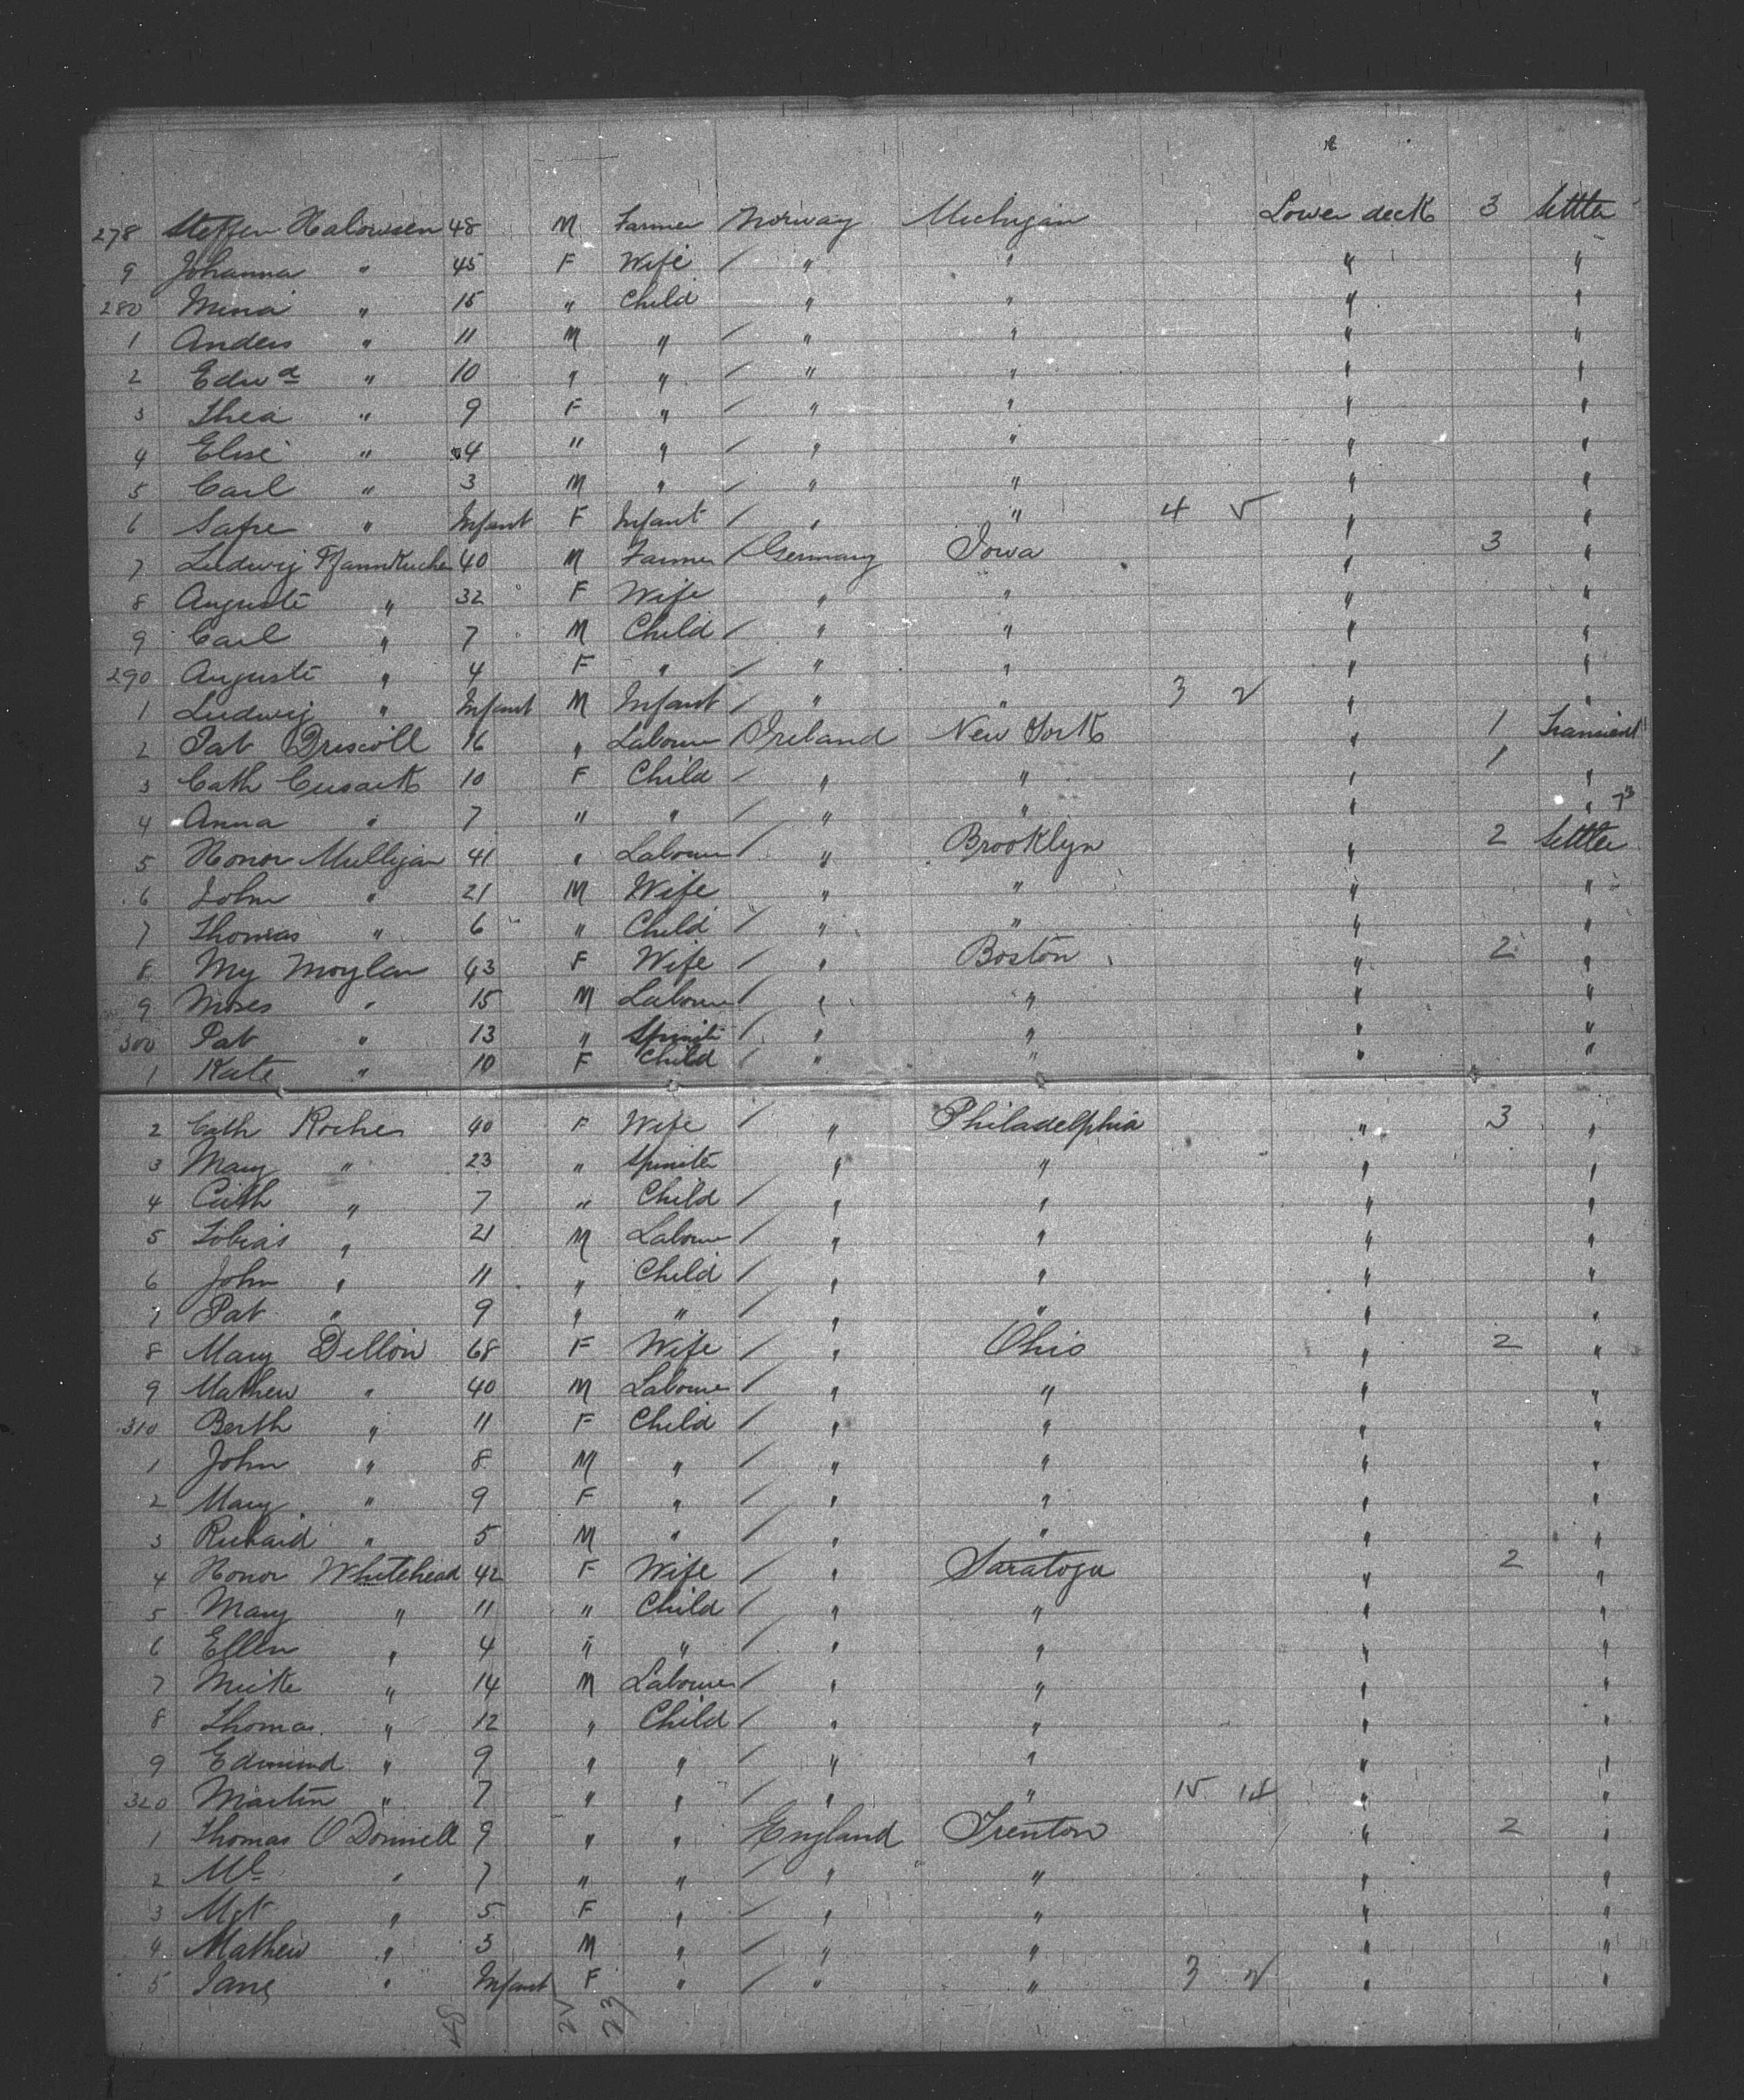 278 Steffen Halowsen 48 M Farmer Norway Michigan Lower deck 3 Settler
9 Johanna " 45 F Wife / " " " "
280 Mina " 15 " Child " " " "
1 Anders " 11 M " / " " " "
2 Edwd " 10 " " / " " " "
3 Thea " 9 F " / " " " "
4 Elise " 4 " " / " " " "
5 Carl " 3 M " / " " " "
6 " Infant F Infant / " " 4 5 " "
7 Ludwig Pfannkuchen 40 M Farmer / Germany Iowa " 3 "
8 Auguste " 32 F Wife " " " "
9 Carl " 7 M Child / " " " "
290 Auguste " 4 F " / " " " "
1 Ludwig " Infant M Infant / " " 3 2 " "
2 Pat Driscoll 16 " Labourer / Ireland New York " 1 Transient
3 Cath Cusack 10 F Child / " " " 1 "
4 Anna " 7 " " / " " " "
5 Honor Mulligan 41 " Labourer / " Brooklyn " 2 Settler
6 John " 21 M Wife " " " "
7 Thomas " 6 " Child / " " " "
8 My Moylan 43 F Wife / " Boston " 2 "
9 Moses " 15 M Labourer / " " " "
300 Pat " 13 " Spinster / " " " "
1 Kate " 10 F Child / " " " "
2 Cath Roches 40 F Wife / " Philadelphia " 3 "
3 Mary " 23 " Spinster " " " "
4 Cath " 7 " Child / " " " "
5 Tobias " 21 M Labourer / " " " "
6 John " 11 " Child / " " " "
7 Pat " 9 " " / " " " "
8 Mary Dillon 68 F Wife / " Ohio " 2 "
9 Mathew " 40 M Labourer / " " " "
310 Berth " 11 F Child / " " " "
1 John " 8 M " / " " " "
2 Mary " 9 F " / " " " "
3 Richard " 5 M " / " " " "
4 Honor Whitehead 42 F Wife / " Saratoga " 2 "
5 Mary " 11 " Child / " " " "
6 Ellen " 4 " " / " " " "
7 Mick " 14 M Labourer / " " " "
8 Thomas " 12 " Child / " " " "
9 Edmund " 9 " " / " " " "
320 Martin " 7 " " / " " 15 14 " "
1 Thomas O Donnell 9 " " England Trenton " 2 "
2 Ml " 7 " " / " " " "
3 Mgt " 5 F " / " " " "
4 Mathew " 3 M " / " " " "
5 Jane " Infant F " / " " 3 2 " "